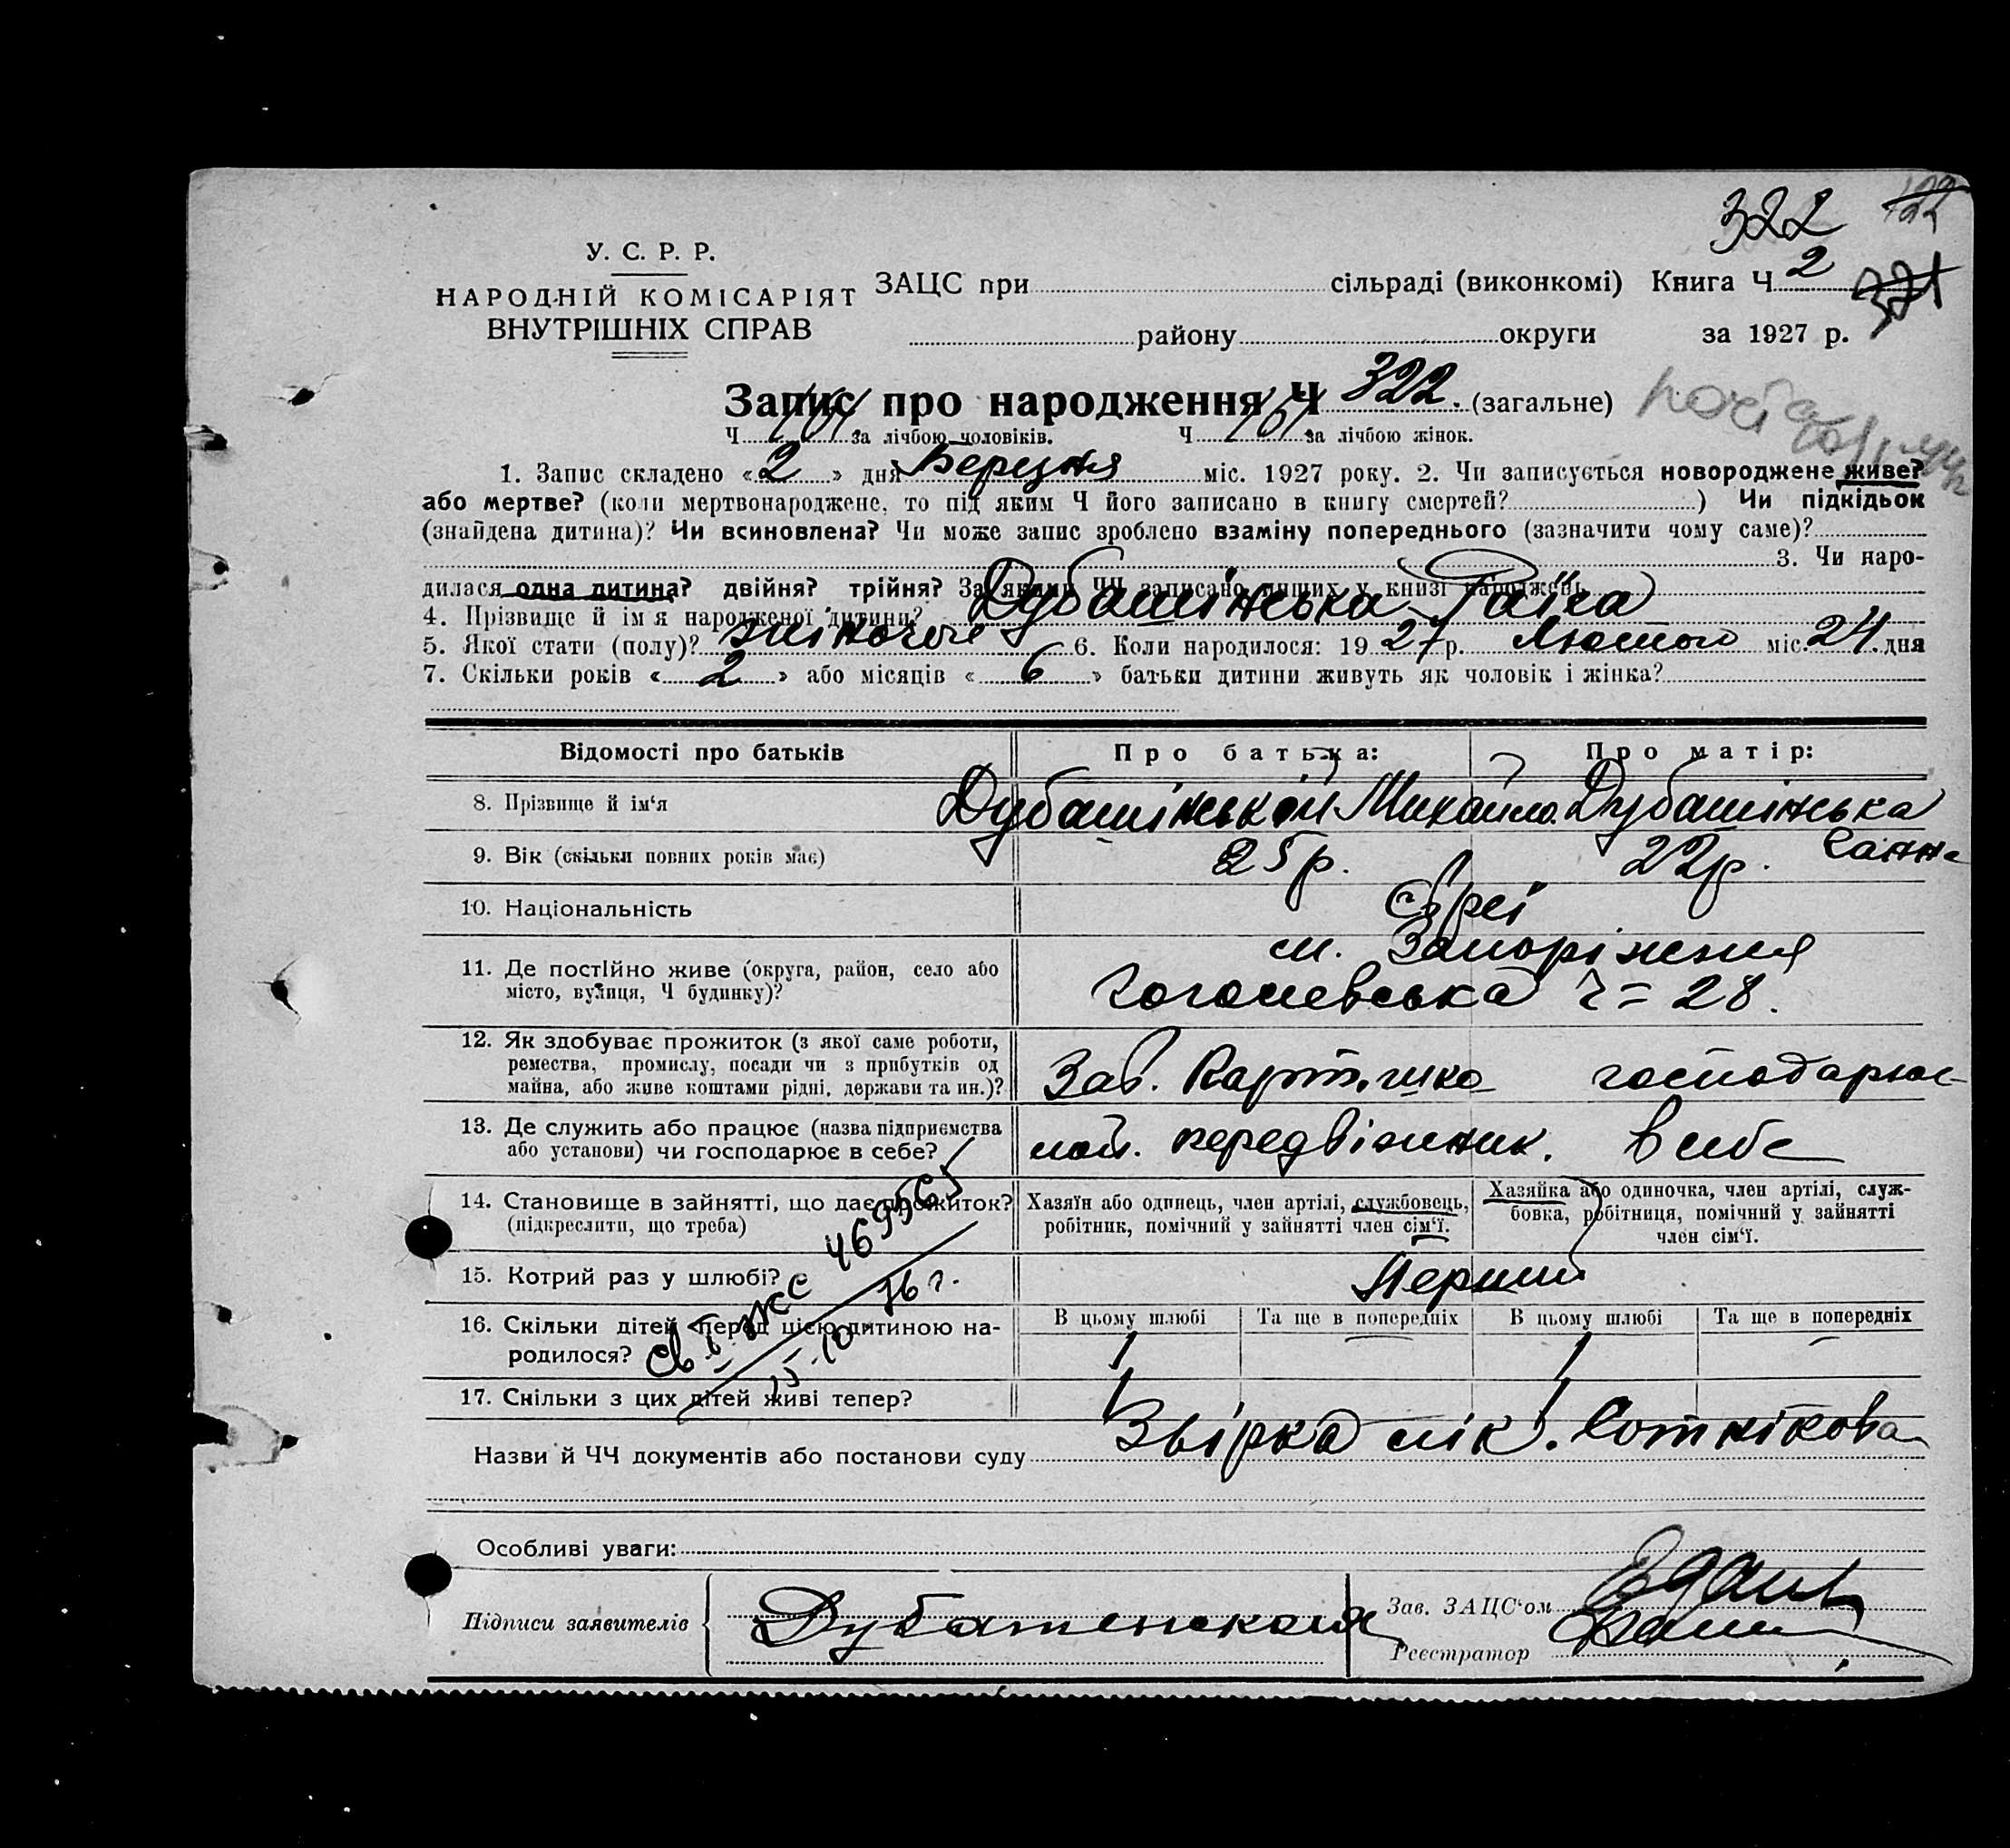 322
У. С. Р. Р.
НАРОДНІЙ КОМІСАРІЯТ
ВНУТРІШНІХ СПРАВ
ЗАЦС при сільраді (виконкомі) Книга Ч 2
району округи за 1927 р.
Запис про народження Ч 322. (загальне)
Ч за лічбою чоловіків. Ч за лічбою жінок.
1. Запис складено «2» дня Березня міс. 1927 року. 2. Чи записується новороджене живе?
або мертве? (коли мертвонароджене, то під яким Ч його записано в книгу смертей? ) Чи підкідьок
(знайдена дитина)? Чи всиновлена? Чи може запис зроблено взаміну попереднього (зазначити чому саме)?
3. Чи наро-
дилася одна дитина? двійня? трійня? За якими ЧЧ записано инших у книзі народжень
4. Прізвище й ім'я народженої дитини? Дубашінська Раїса
5. Якої стати (полу)? жіночої 6. Коли народилося: 1927 р. Лютого міс. 24. дня
7. Скільки років «2» або місяців «6» батьки дитини живуть як чоловік і жінка?
Відомості про батьків Про батька: Про матір:
8. Прізвище й ім'я Дубашінський Михайло Дубашінська
Ганна
9. Вік (скільки повних років має) 25 р. 22 р.
10. Національність Євреї
11. Де постійно живе (округа, район, село або місто, вулиця, Ч будинку)? м. Запоріжжя
Гоголевська ч = 28.
12. Як здобуває прожиток (з якої саме роботи, ремества, промислу, посади чи з прибутків од майна, або живе коштами рідні, держави та ин.)? Зав. господарює
13. Де служить або працює (назва підприємства або установи) чи господарює в себе? в себе
14. Становище в зайнятті, що дає прожиток? (підкреслити, що треба)
Хазяїн або одинець, член артілі, службовець, робітник, помічний у зайнятті член сім'ї.
Хазяйка або одиночка, член артілі, служ-
бовка, робітниця, помічний у зайнятті
член сім'ї.
15. Котрий раз у шлюбі? Перший
16. Скільки дітей перед цією дитиною на-
родилося?
В цьому шлюбі Та ще в попередніх В цьому шлюбі Та ще в попередніх
1 – 1 –
17. Скільки з цих дітей живі тепер? 1 1
469565
15-10 76 г.
Назви й ЧЧ документів або постанови суду Звірка лік. Сотнікова
Особливі уваги:
Підписи заявителів Дубашенская
Зав. ЗАЦС'ом
Реєстратор